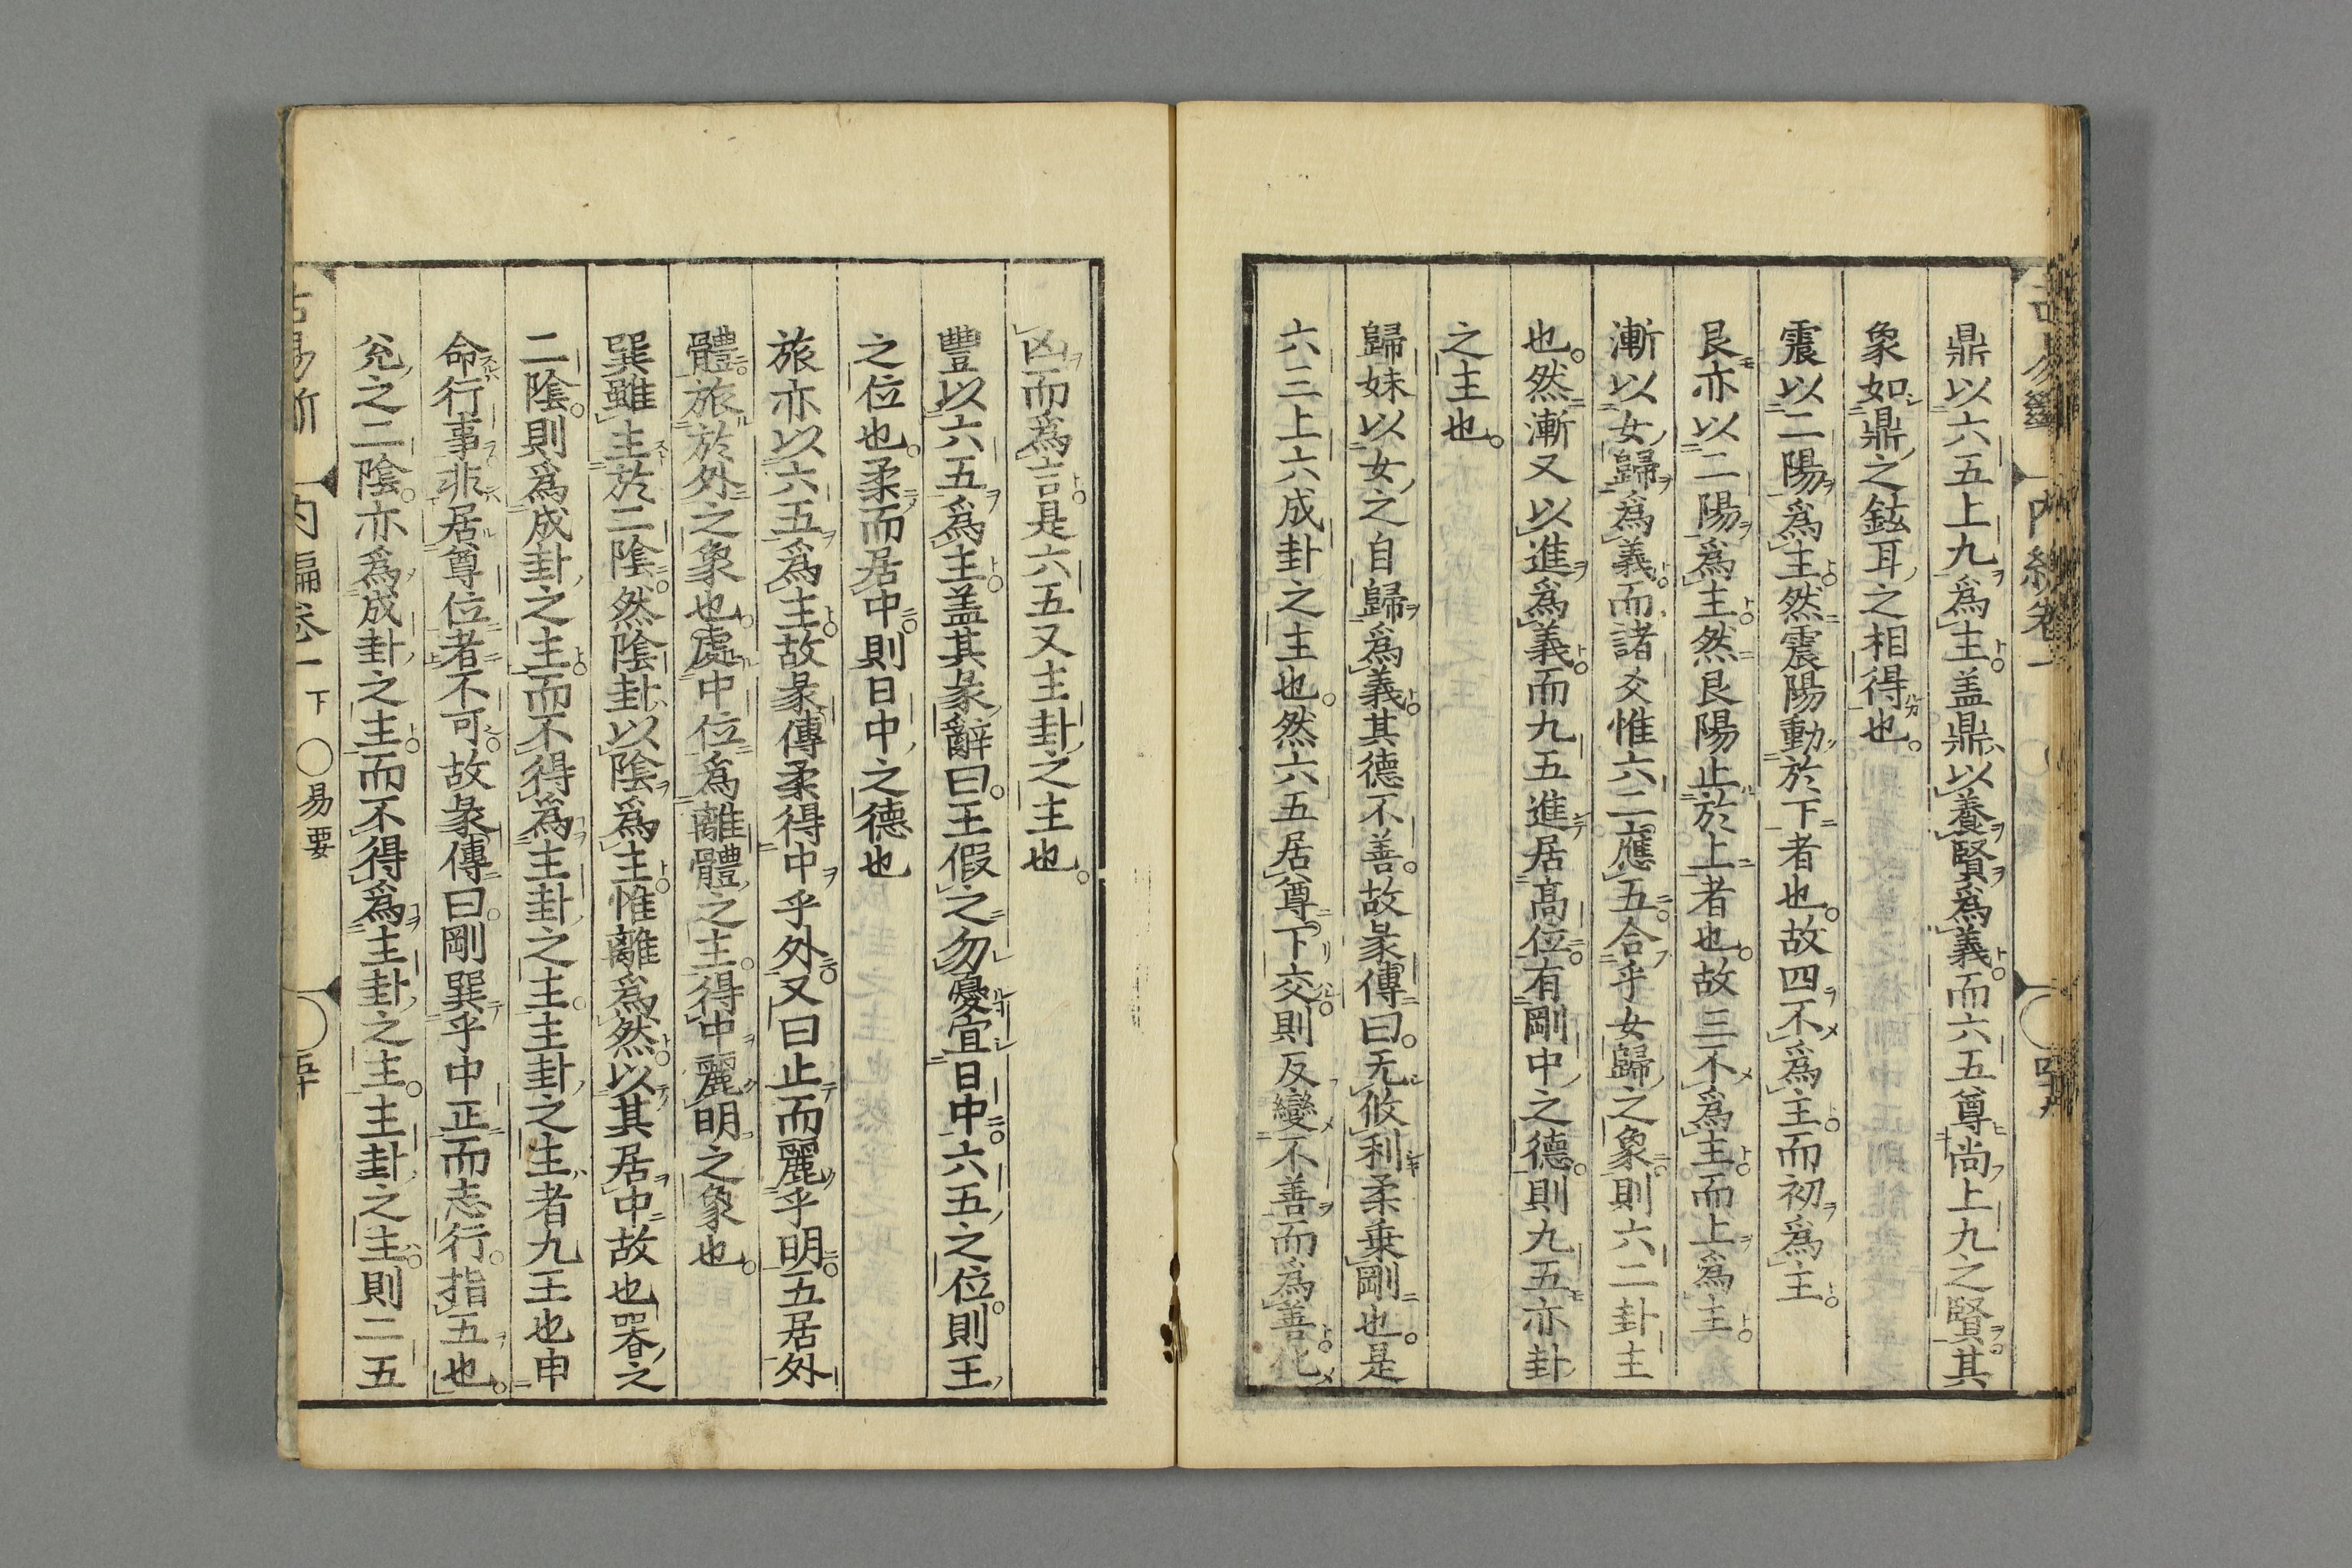 鼎以六五上九爲主盖鼎以養賢爲義而六五尊尚上九之賢其
象如鼎之鉉耳之相得也
震以二陽爲主然震陽動於下者也故四不爲主而初爲主
艮亦以二陽爲主然艮陽止於上者也故三不爲主而上爲主
漸以女歸爲義而諸爻惟六二應五合乎女歸之象則六二卦主
也然漸又以進爲義而九五進居高位有剛中之德則九五亦卦
之主也
歸妹以女之自歸爲義其德不善故彖傳曰无攸利柔乗剛也是
六三上六成卦之主也然六五居尊下交則反變不善而爲善化
凶而爲吉是六五又主卦之主也
豐以六五爲主盖其彖辭曰王假之勿憂宜日中六五之位則王
之位也柔而居中則日中之德也
旅亦以六五爲主故彖傳柔得中乎外又曰止而麗乎明五居外
體旅於外之象也處中位爲離體之主得中麗明之象也
巽雖主於二陰然陰卦以陰爲主惟離爲然以其居中故也巽之
二陰則爲成卦之主而不得爲主卦之主主卦之主者九王也申
命行事非居尊位者不可故彖傳曰剛巽乎中正而志行指五也
兊之二陰亦爲成卦之主而不得爲主卦之主主卦之主則二五
古易斷 内編卷一 下 〇易要